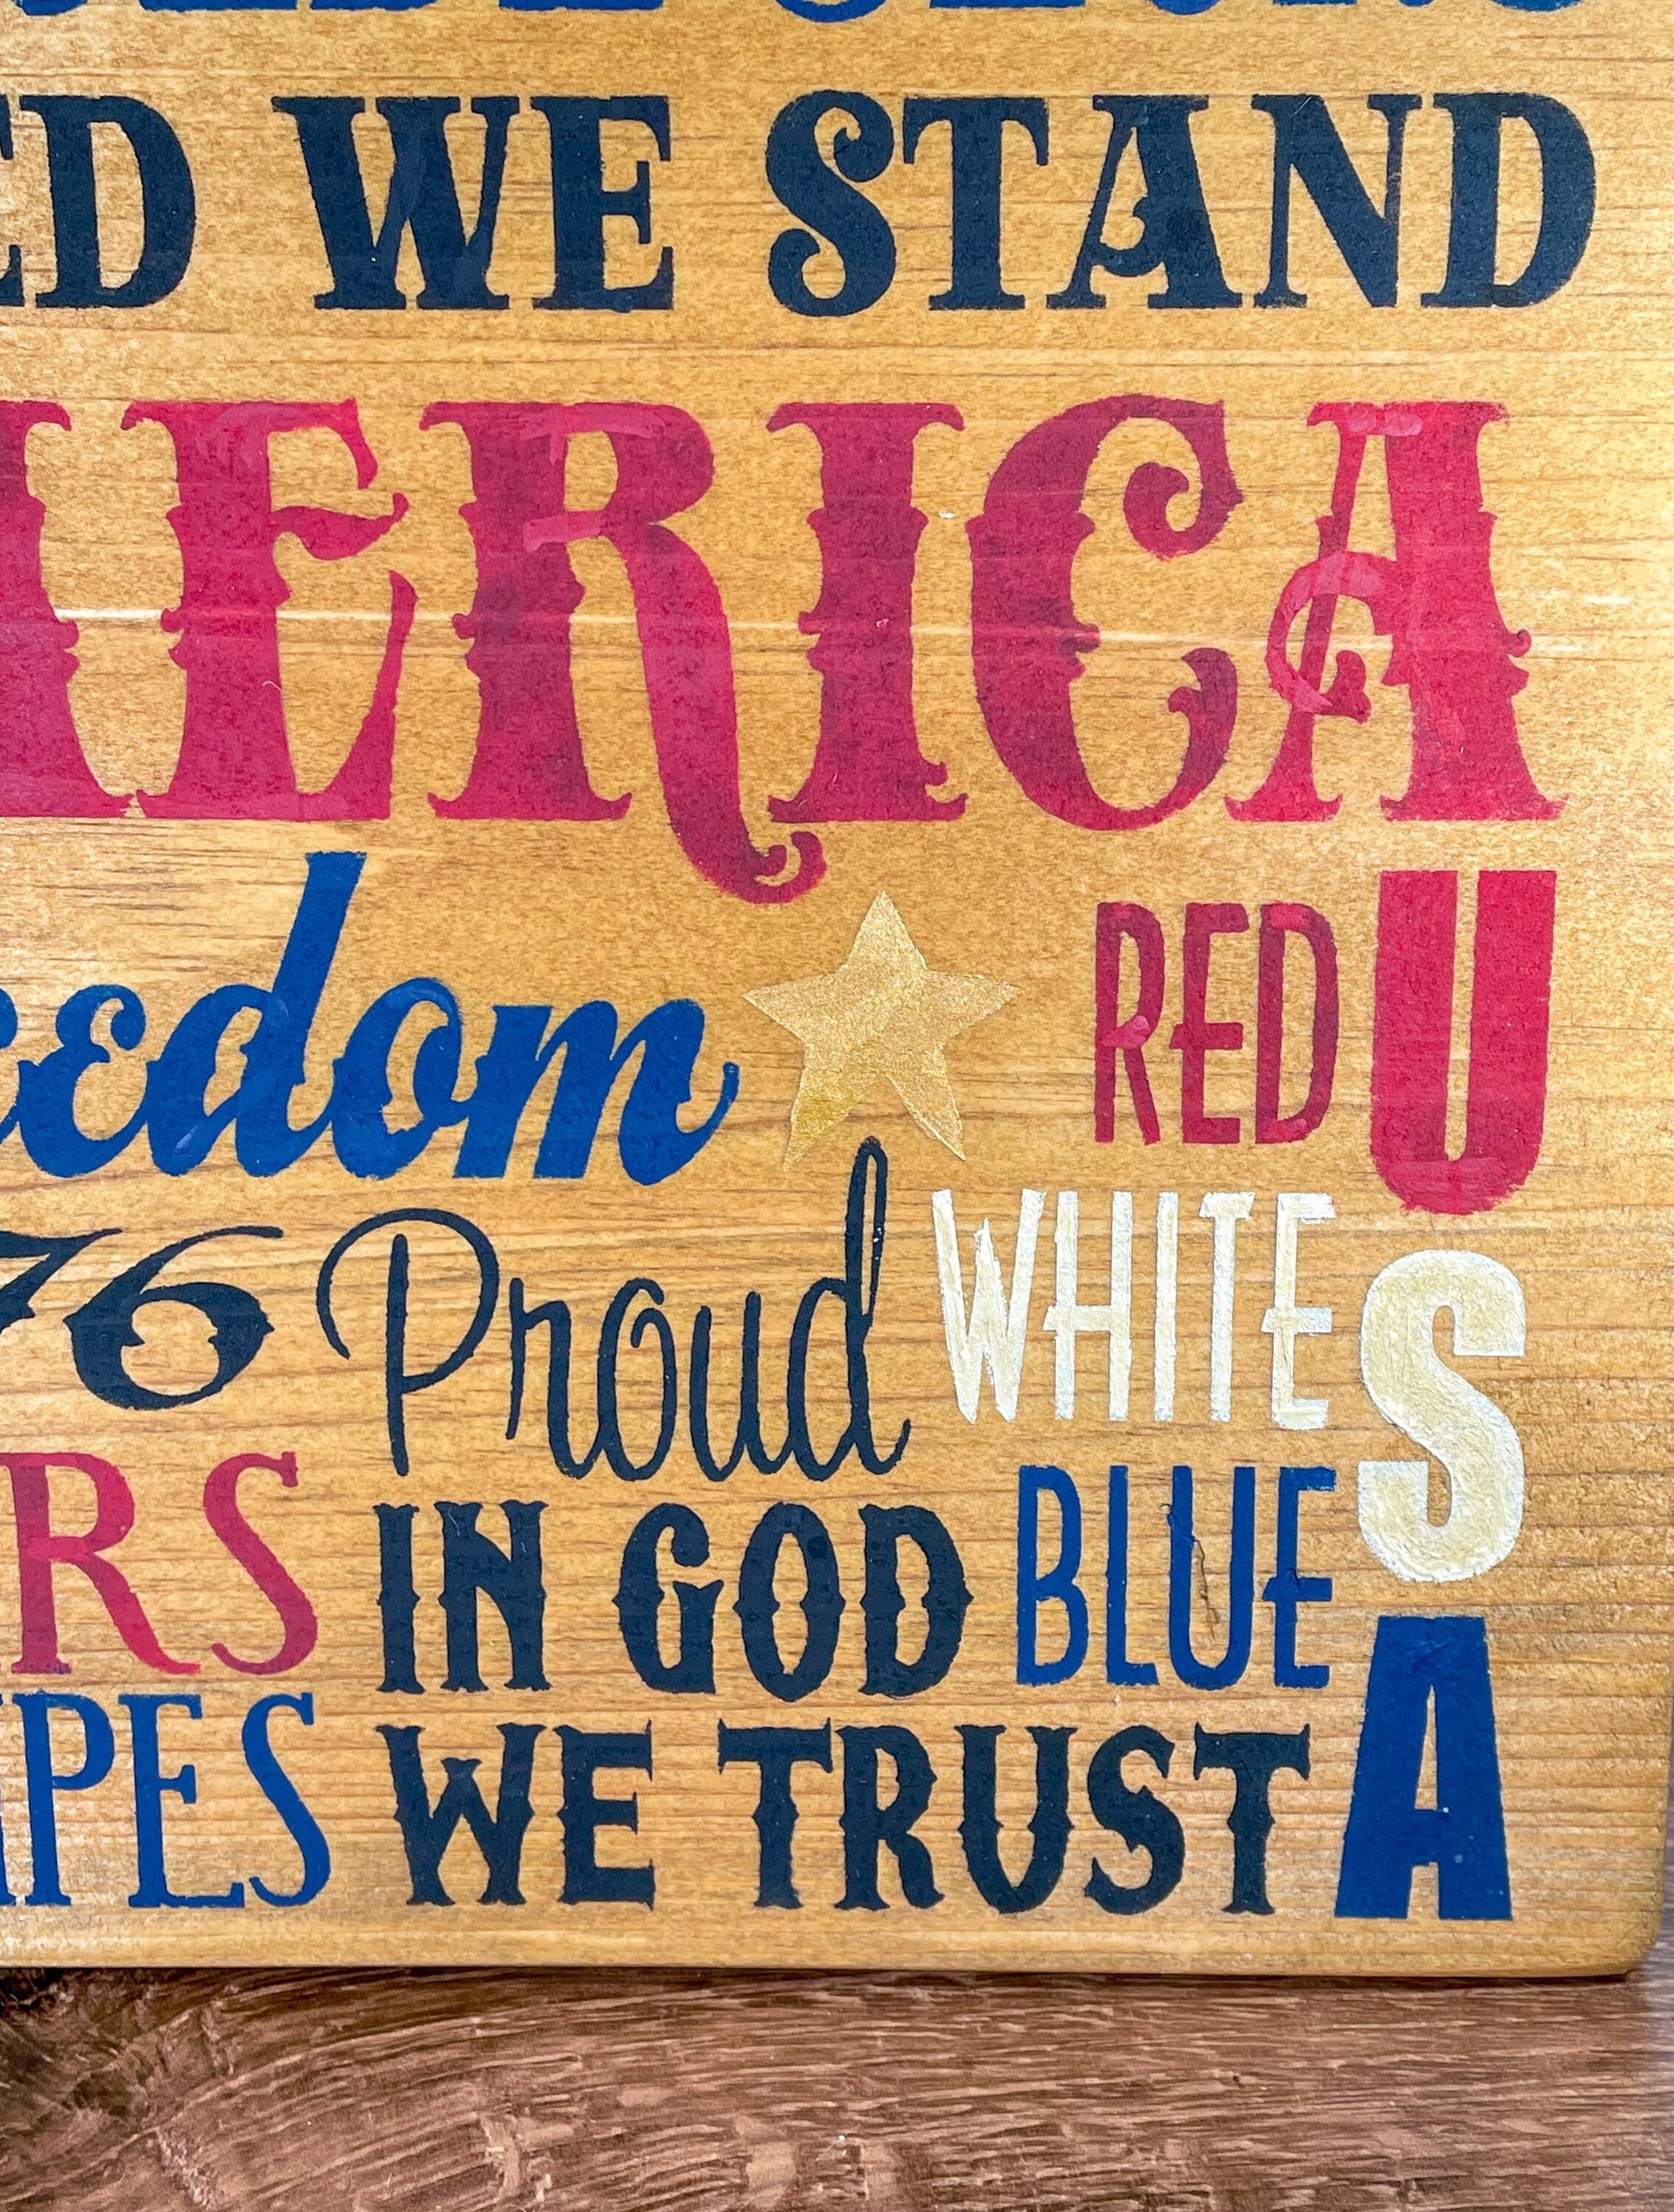 ED WE STAND
MERICA
eedom RED
U
76 Proud WHITE
S
RS IN GOD BLUE
IPES WE TRUST
A